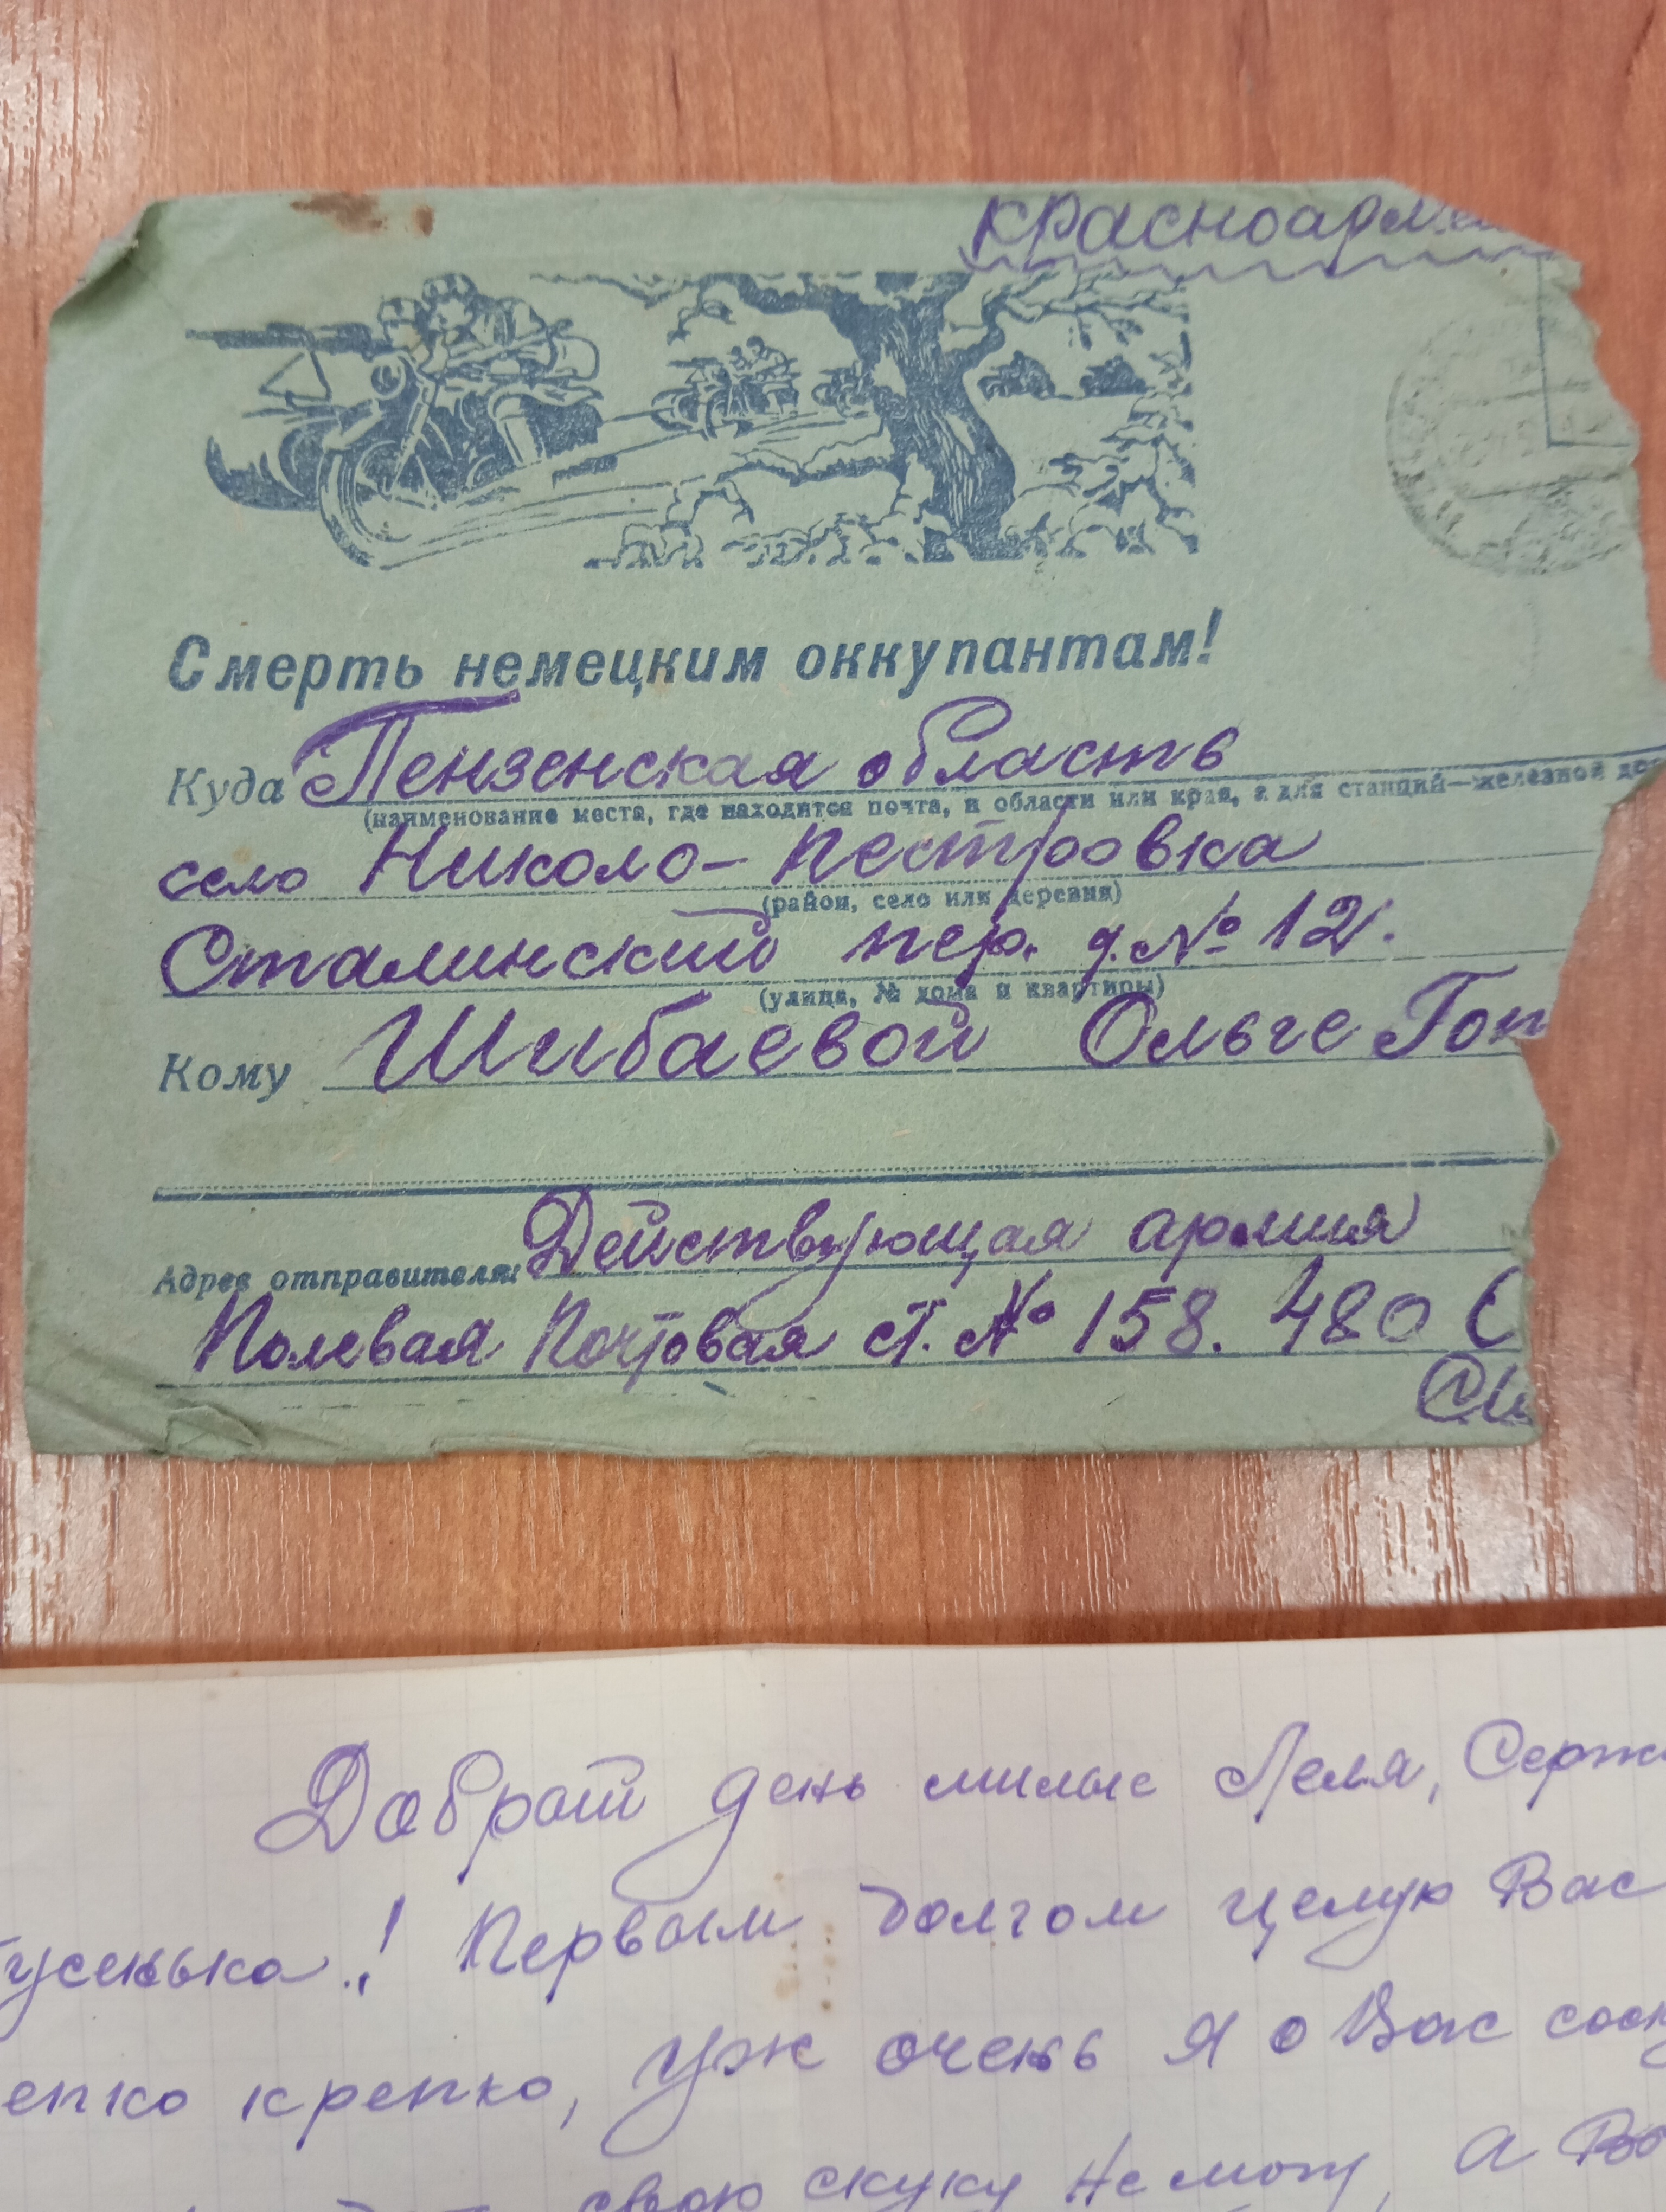 Красноарм
Смерть немецким оккупантам!
Куда Пензенская область
(наименование места, где находится почта, и области или края, а для станций—железной до
село Николо-Пестровка
(район, село или деревня)
Сталинский пер. д. № 12.
(улица, № дома и квартиры)
Кому Шибаевой Ольге Гоп
Адрес отправителя: Действующая армия
Полевая Почтовая ст. № 158. 480 (
Добрый день милые Леля, Серж
усенька! Первым долгом целую Вас
епко крепко, уж очень я о Вас соск
свою скуку не могу, а